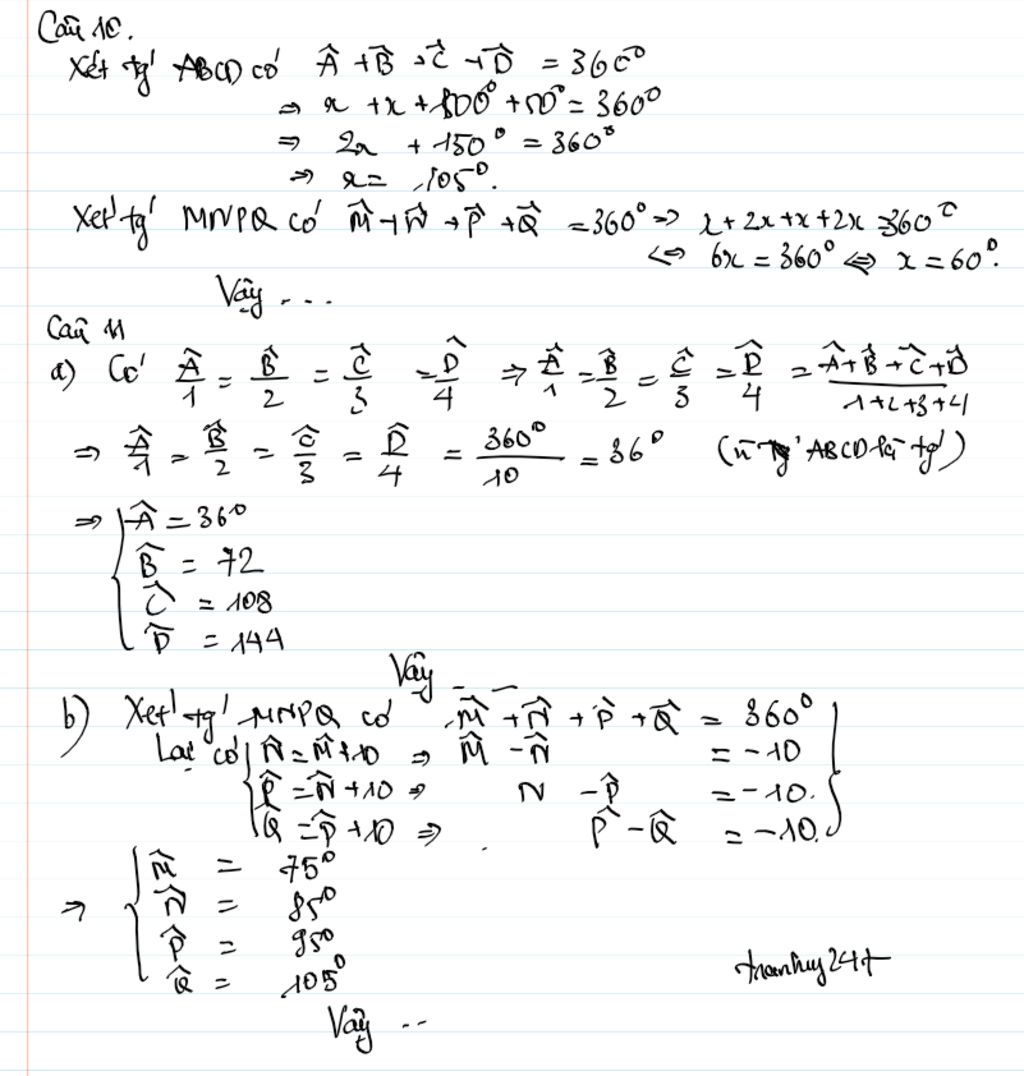 Câu 10.
Xét tg' ABCD có Â + B̂ + Ĉ + D̂ = 360°
⇒ x + x + 100° + 50° = 360°
⇒ 2x + 150° = 360°
⇒ x = 105°.
Xét tg' MNPQ có M̂ + N̂ + P̂ + Q̂ = 360° ⇒ x + 2x + x + 2x = 360°
⇔ 6x = 360° ⇔ x = 60°.
Vậy ...
Câu 11
a) Có Â/1 = B̂/2 = Ĉ/3 = D̂/4 ⇒ Â/1 = B̂/2 = Ĉ/3 = D̂/4 = (Â + B̂ + Ĉ + D̂)/(1+2+3+4)
⇒ Â/1 = B̂/2 = Ĉ/3 = D̂/4 = 360°/10 = 36° (vì tg' ABCD là tg')
⇒ { Â = 36°
B̂ = 72
Ĉ = 108
D̂ = 144
Vậy --
b) Xét tg' MNPQ có M̂ + N̂ + P̂ + Q̂ = 360°
Lại có { N̂ = M̂ + 10 ⇒ M̂ - N̂ = -10
P̂ = N̂ + 10 ⇒ N - P̂ = -10.
Q̂ = P̂ + 10 ⇒ P̂ - Q̂ = -10.
⇒ { M̂ = 75°
N̂ = 85°
P̂ = 95°
Q̂ = 105°
tranhuy24t
Vậy --